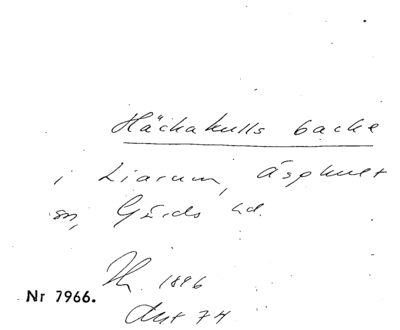 Häckakulls backe
i Liarum, Äsphult
sn, Gärds hd.
1896
Nr 7966.
74